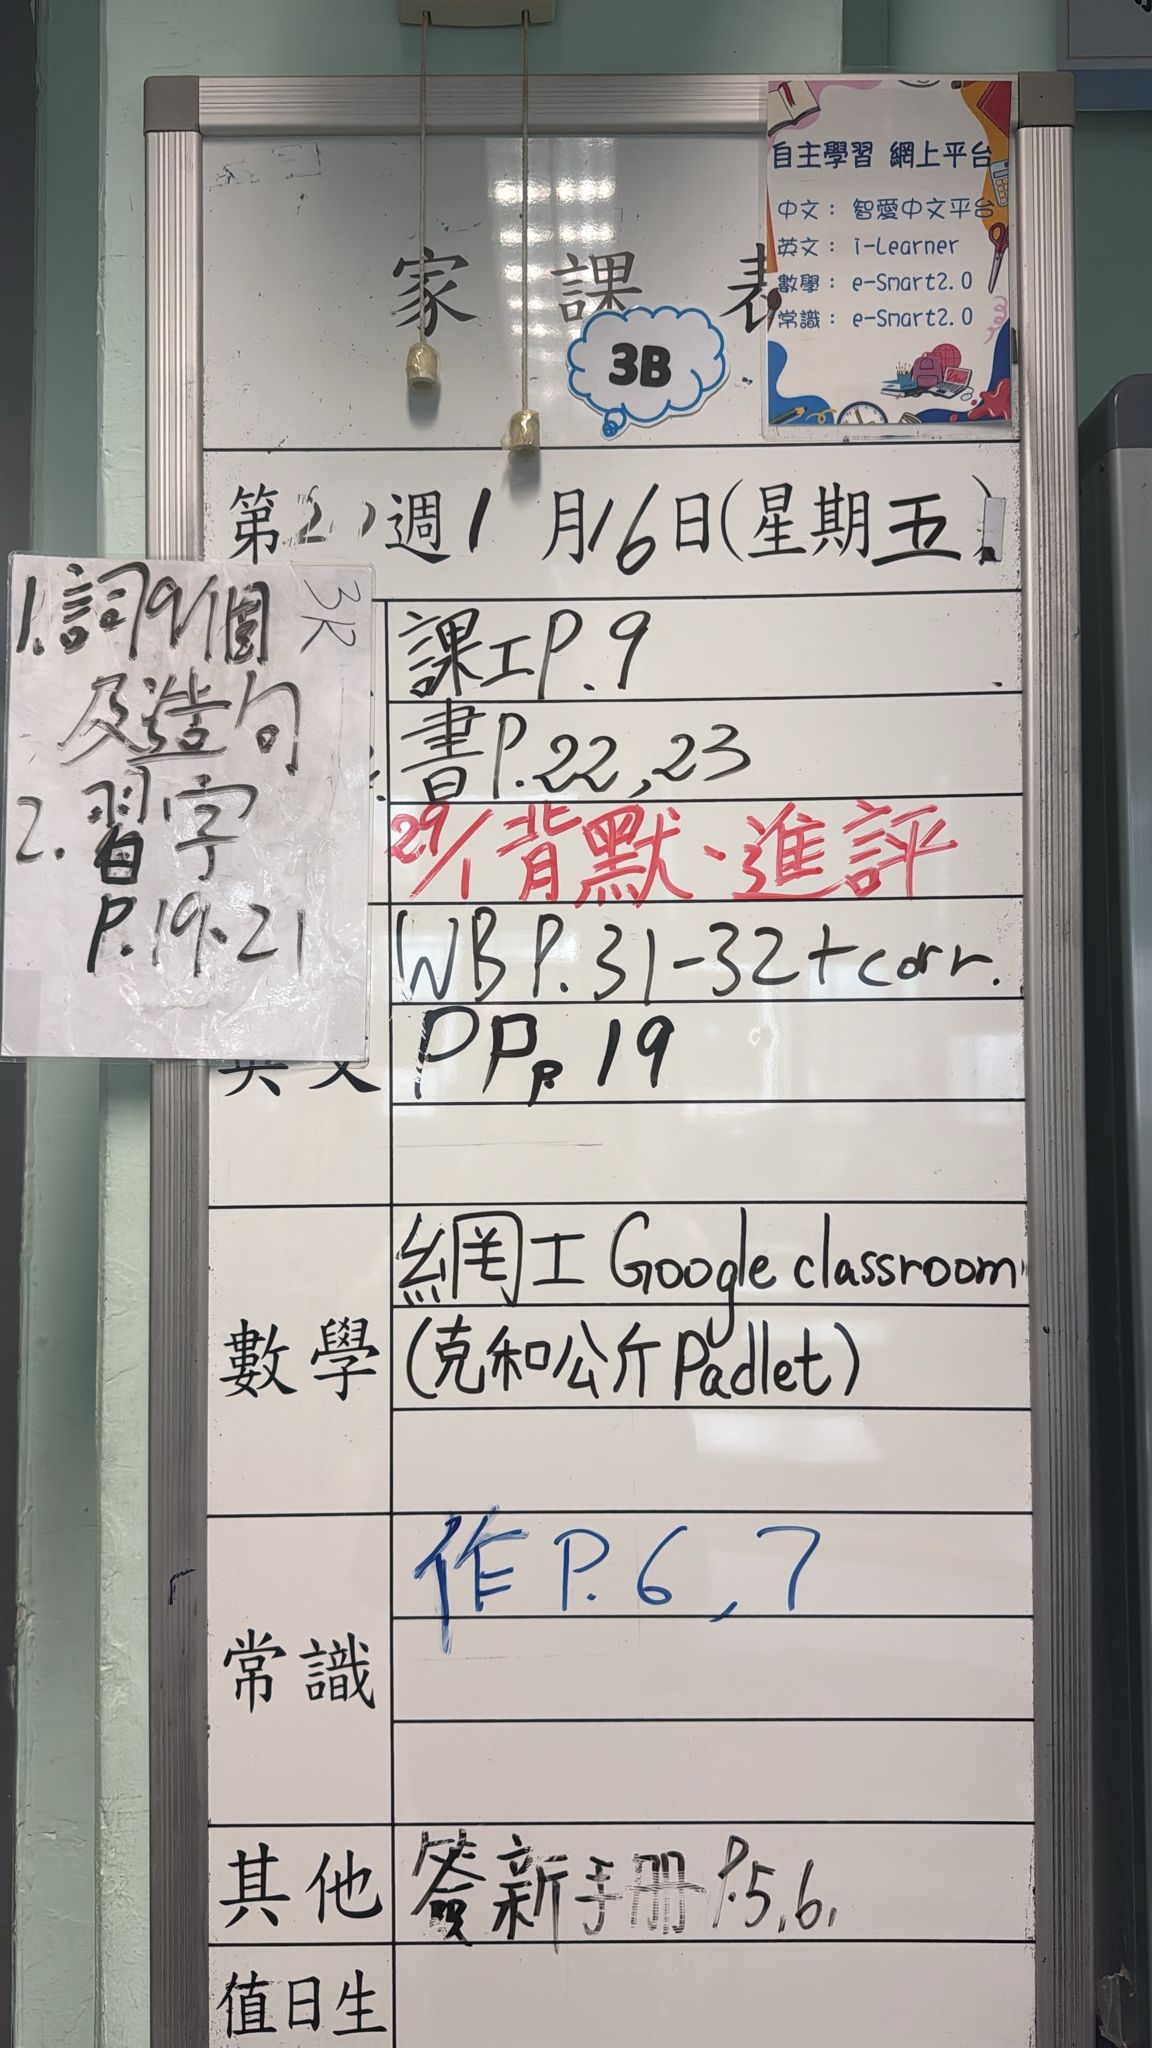 自主學習 網上平台
中文： 智愛中文平台
英文： i-Learner
數學： e-Smart2.0
常識： e-Smart2.0
家 課 表
3B
第 週 1 月 16 日(星期五)
3R
1.詞9個
及造句
2. 習字
P.19、21
課工P.9
書P.22,23
29/1背默、進評
英文
WB P.31-32+corr.
PP p 19
數學
網工 Google classroom
(克和公斤 Padlet)
常識
作P.6,7
其他
簽新手冊 P.5,6,
值日生